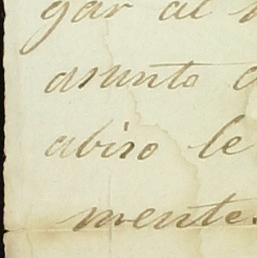 gar al
asunto
abiso le
mente.